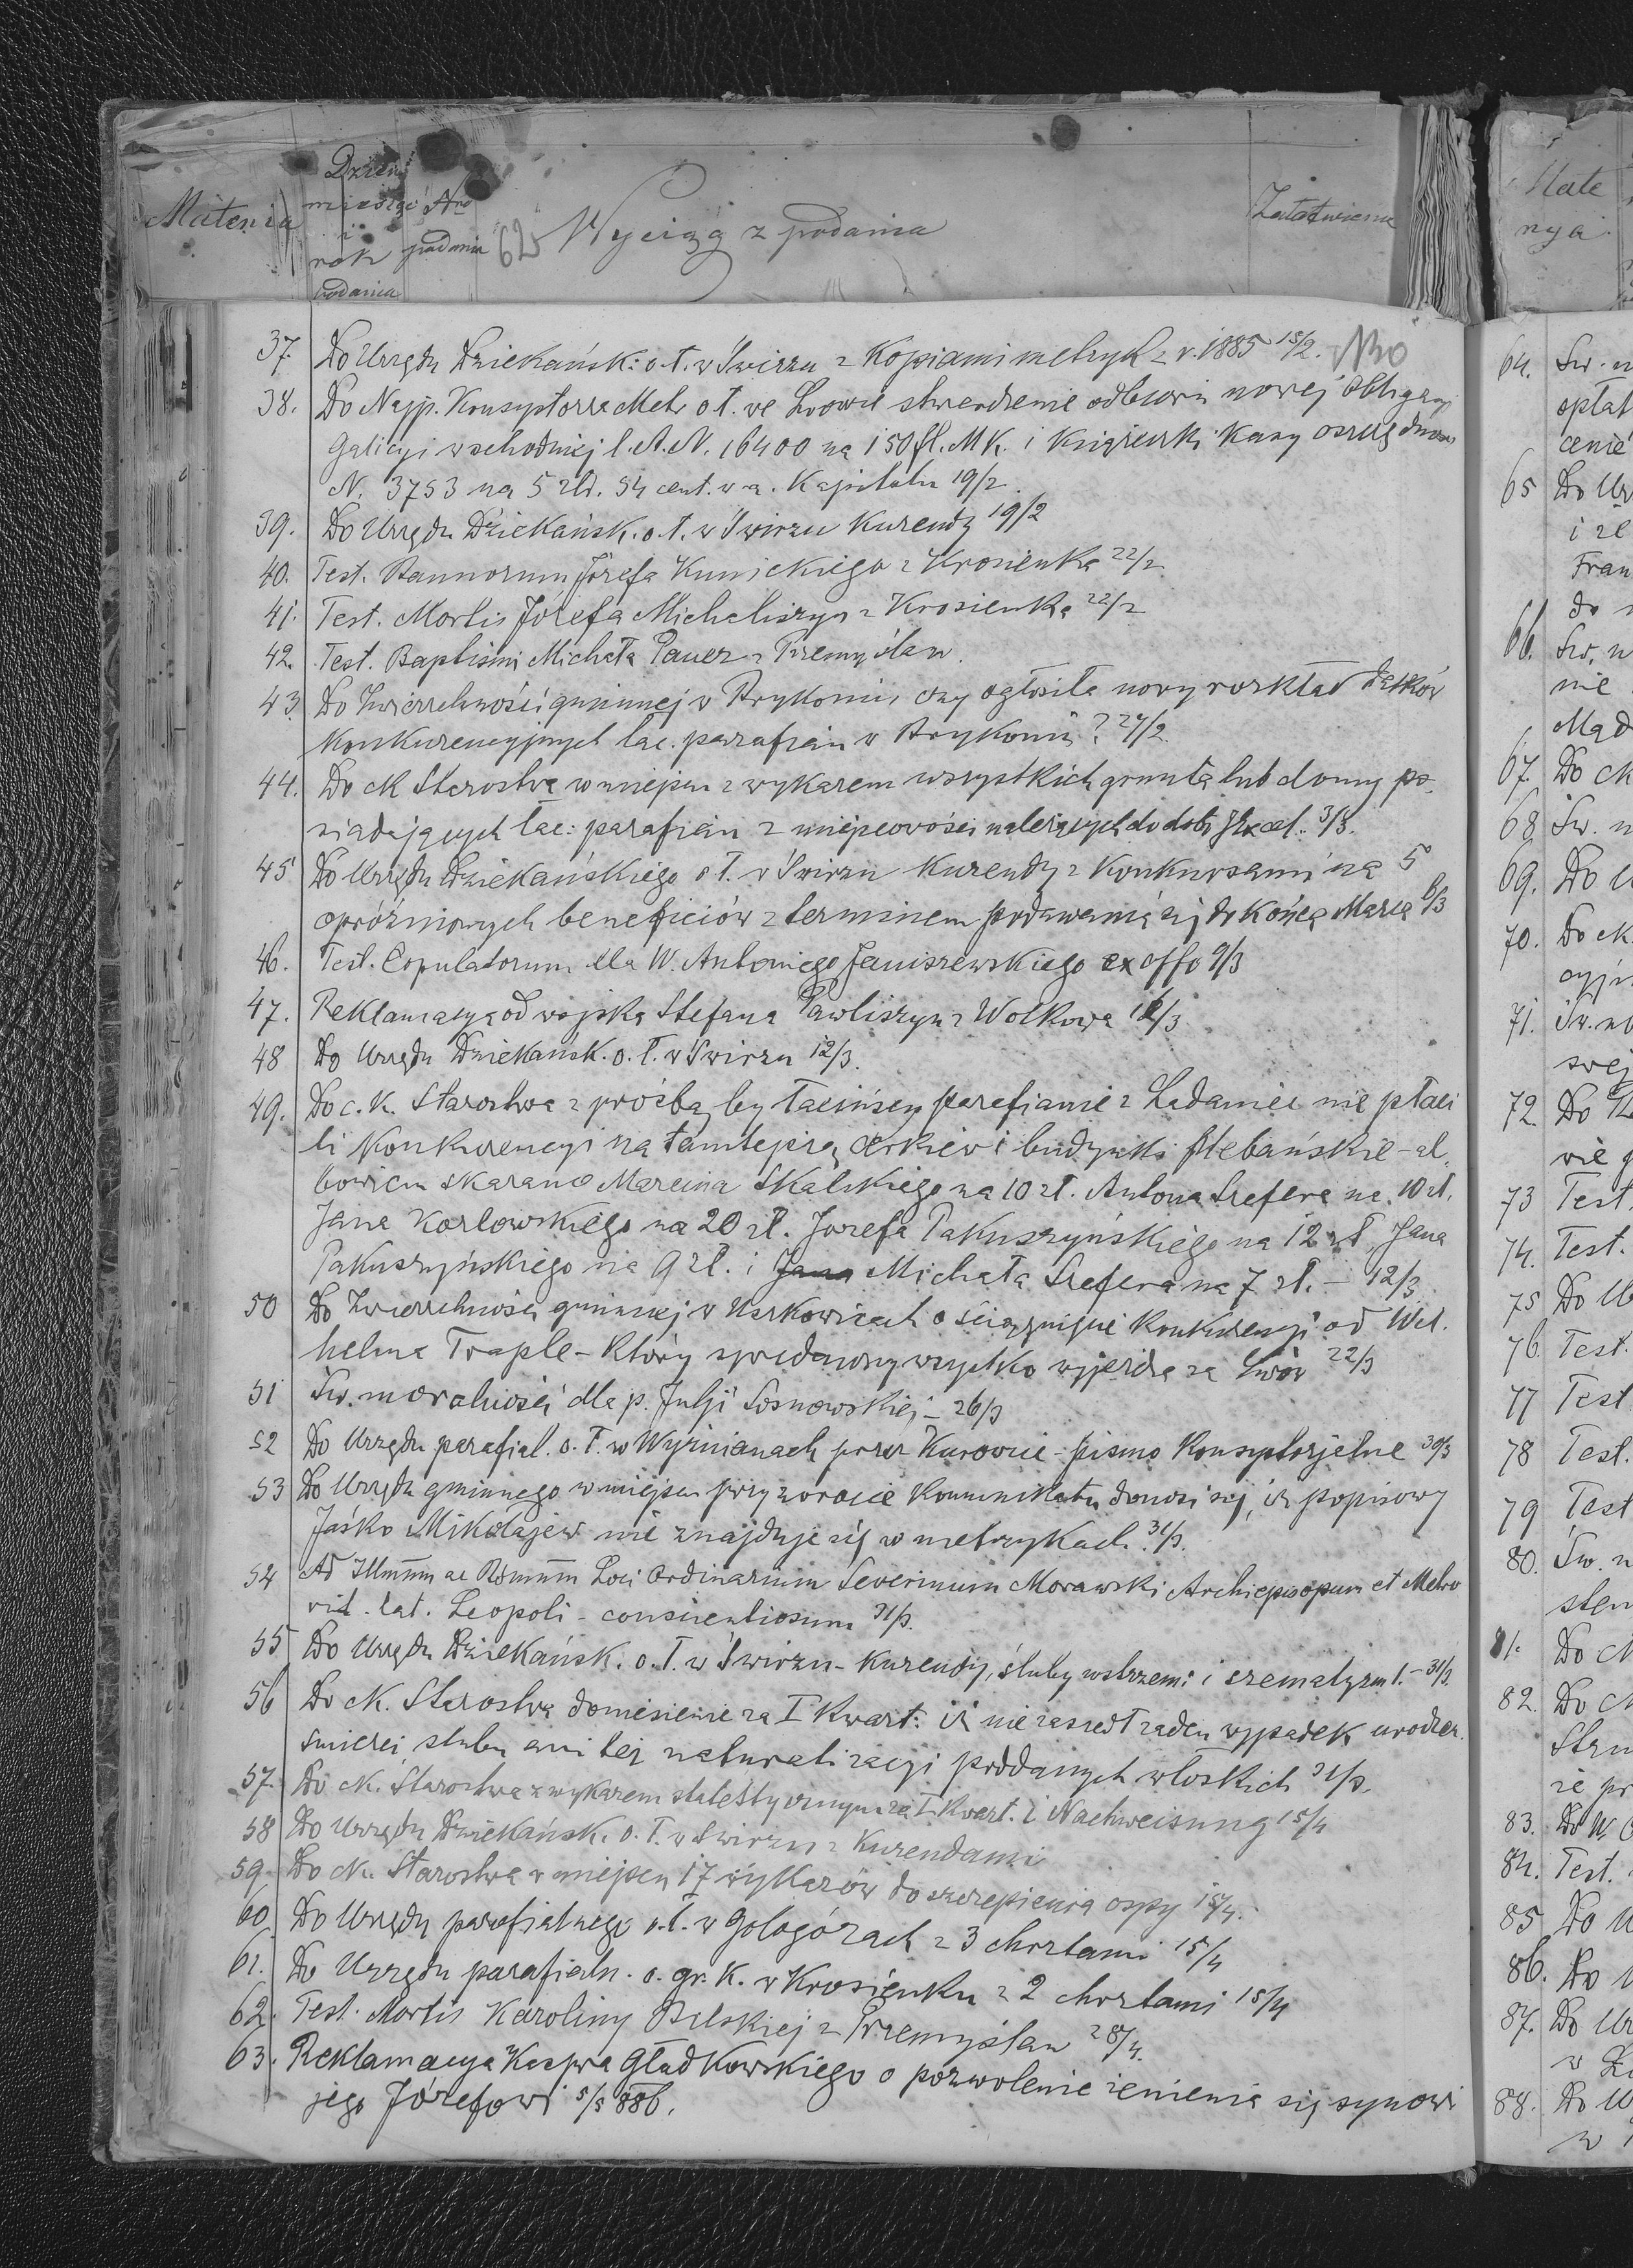 Materia
Dzień
miesiąc
i
rok
podania
Nro
podania
62
Wyciąg z podania
Załatwienie
37. Do Urzędu Dziekańsk: o. ł. w Świrzu z Kopiami metryk z r. 1885 15/2.
38. Do Najp. Konsystorza Metr. o ł. we Lwowie stwierdzenie odbioru nowej Obligacyi
Galicyi wschodniej l. A. N. 16400 na 150 fl. MK. i Książeczki Kasy oszczędności
N. 3753 na 5 zł. 54 cent. w. a. Kapitału 19/2
39. Do Urzędu Dziekańsk. o. ł. w Świrzu Kurendy 19/2
40. Test. Bannorum Józefa Kunickiego z Krosienka 22/2
41. Test. Mortis Józefa Micheliszyn z Krosienka 22/2
42. Test. Baptismi Michała Pauer z Przemyślan.
43. Do Zwierzchności gminnej w Brykoniu czy ogłosiła nowy rozkład datków
Konkurencyjnych łac. parafian w Brykoniu? 24/2
44. Do ck Starostwa w miejscu z wykazem wszystkich grunta lub domy po-
siadających łac: parafian z miejscowości należących do dóbr 3/3.
45 Do Urzędu Dziekańskiego o ł. w Świrzu Kurendy z Konkursami na 5
opróżnionych beneficiów z terminem podawania się do Końca Marca 6/3
46. Test. Copulatorum dla W. Antoniego Janiszewskiego ex offo 9/3
47. Reklamacya od wojska Stefana Pawliszyn z Wołkowa 12/3
48 Do Urzędu Dziekańsk. o. ł. w Świrzu 12/3.
49. Do c. k. Starostwa z prośbą by łacińscy parafianie z Ładaniec nie płaci
li Konkurencyi na tamtejszą cerkiew i budynki plebańskie - al-
bowiem skarano Marcina Skalskiego na 10 zł. Antona Szefera na 10 zł.
Jana Kozłowskiego na 20 zł. Józefa Pakuszyńskiego na 12 zł, Jana
Pakuszyńskiego na 9 zł. i Jana Michała Szefera na 7 zł. - 12/3
50 Do Zwierzchności gminnej w Uszkowicach o ściągnięcie Konkurencyi od Wil-
helma Traple - Który sprzedawszy wszystko wyjeżdża za Lwów 22/3
51 Św. moralności dla p. Julji Sosnowskiej - 26/3
52 Do Urzędu parafial. o. ł. w Wyżnianach przez Kurowice - pismo Konsystorjalne 30/3
53 Do Urzędu gminnego w miejscu przy zwrocie Komunikatu donosi się, iż popisowy
Jaśko Mikołajew nie znajduje się w metrykach. 31/3.
54 Ad Illmum ac Rdmum Loci Ordinarium Severinum Morawski Archiepiscopum et Metro
rit. lat. Leopoli - consirentiosum 31/3.
55 Do Urzędu Dziekańsk. o. ł. w Świrzu - Kurendy, śluby wstrzem: i szematyzm 1. - 31/3.
56 Do ck. Starostwa doniesienie za I Kwart: iż nie zaszedł żaden wypadek urodzen.
śmierci, ślubu ani też naturalizacyi poddanych włoskich 31/3.
57. Do ck. Starostwa z wykazem statystycznym za I Kwart. i Nachweisung 15/4
58 Do Urzędu Dziekańsk. o. ł. w Świrzu z Kurendami
59. Do ck. Starostwa w miejscu 17 wykazów do szczepienia ospy 15/4.
60. Do Urzędu parafialnego o. ł. w Gołogórach z 3 chrztami 15/4
61. Do Urzędu parafialn. o. gr. K. w Krosienku z 2 chrztami 15/4
62. Test. Mortis Karoliny Bilskiej z Przemyślan 28/4.
63. Reklamacya Kaspra Gładkowskiego o pozwolenie żenienia się synowi
jego Józefowi 5/5 886.
Mate
rya
64. Św. u
opłat
cenie
65 Do Ur
i ze
Fran
do
66. Św. u
nie
Mąd
67. Do ck
68. Św. u
69. Do U
70. Do ck
cyjn
71. Św. ub
swej
72. Do
wie g
73 Test.
74. Test.
75 Do U
76. Test.
77 Test
78 Test.
79 Test
80. Św. u
sten
81. Do c
82. Do c
Stru
że pr
83. Do W.
84. Test.
85 Do U
86. Do U
87. Do Ur
w
88. Do U
w